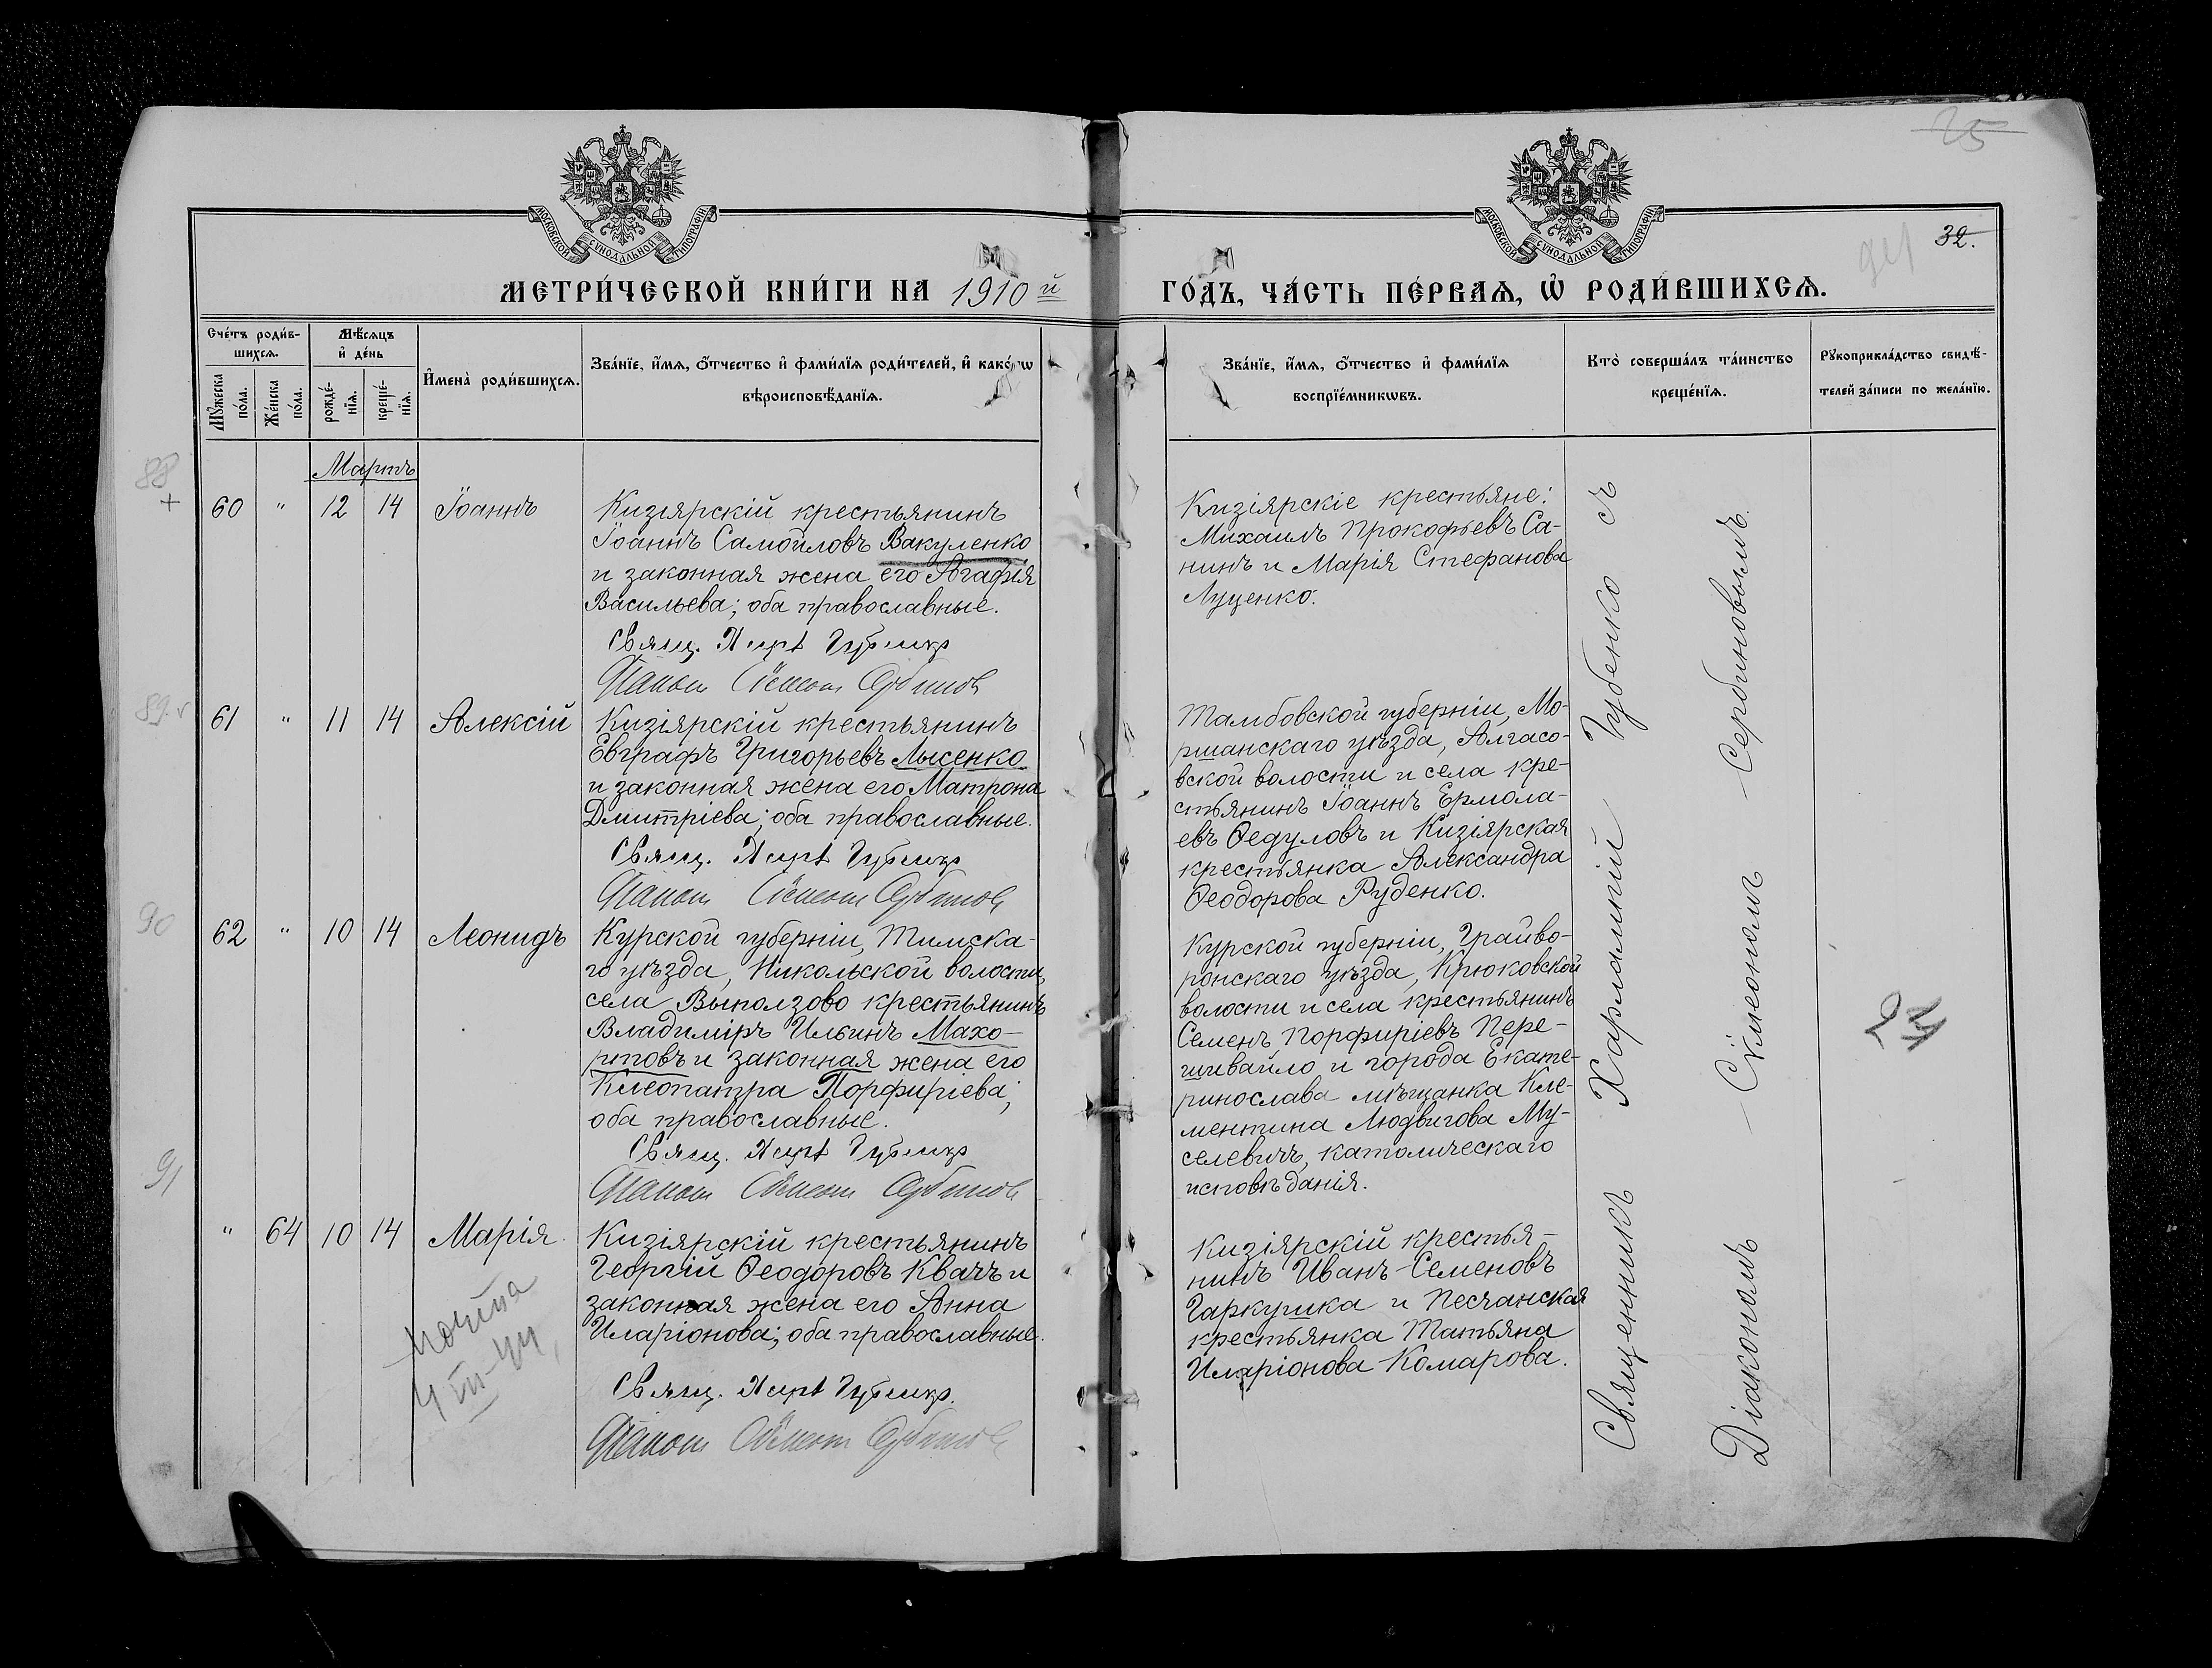 25
32.
МОСКОВСКОЙ СѴНОДАЛЬНОЙ ТИПОГРАФІИ.
МОСКОВСКОЙ СѴНОДАЛЬНОЙ ТИПОГРАФІИ.
МЕТРИ́ЧЕСКОЙ КНИ́ГИ НА 1910й
ГО́ДЪ, ЧА́СТЬ ПЕ́РВАѦ, Ѡ҆ РОДИ́ВШИХСѦ.
Сче́тъ роди́в-
шихсѧ.
Мѣ́сѧцъ
и҆ де́нь
Мꙋ́жеска
по́ла.
Же́нска
по́ла.
рожде́-
нїѧ.
креще́-
нїѧ.
И҆мена̀ роди́вшихсѧ.
Зва́нїе, и҆́мѧ, ѻ҆́тчество и҆ фами́лїѧ роди́телей, и҆ како́гѡ
вѣроисповѣ́данїѧ.
Зва́нїе, и҆́мѧ, ѻ҆́тчество и҆ фами́лїѧ
воспрїе́мникѡвъ.
Кто̀ соверша́лъ та́инство
креще́нїѧ.
Рꙋкоприкла́дство свидѣ́-
телей за́писи по жела́нїю.
Мартъ
88
+
60 " 12 14 Іоаннъ
Кизіярскій крестьянинъ
Іоаннъ Самойловъ Вакуленко
и законная жена его Агафія
Васильева; оба православные.
Свящ.
Кизіярскіе крестьяне:
Михаилъ Прокофьевъ Са-
нинъ и Марія Стефанова
Луценко.
89.v
61 " 11 14 Алексій
Кизіярскій крестьянинъ
Евграфъ Григорьевъ Лысенко
и законная жена его Матрона
Дмитріева; оба православные.
Свящ.
Тамбовской губерніи, Мо-
ршанскаго уѣзда, Алгасо-
вской волости и села кре-
стьянинъ Іоаннъ Ермола-
евъ Ѳедуловъ и Кизіярская
крестьянка Александра
Ѳеодорова Руденко.
90
62 " 10 14 Леонидъ
Курской губерніи, Тимска-
го уѣзда, Никольской волости,
села Выползово крестьянинъ
Владиміръ Ильинъ Махо-
ртовъ и законная жена его
Клеопатра Порфиріева;
оба православные.
Свящ.
Курской губерніи, Грайво-
ронскаго уѣзда, Крюковской
волости и села крестьянинъ
Семенъ Порфиріевъ Пере-
шивайло и города Екате-
ринослава мѣщанка Кле-
ментина Людвигова Му-
селевичъ, католическаго
исповѣданія.
91
" 64 10 14 Марія.
Кизіярскій крестьянинъ
Георгій Ѳеодоровъ Квачъ и
законная жена его Анна
Иларіонова; оба православные.
Свящ.
Кизіярскій крестья-
нинъ Иванъ Семеновъ
Гаркушка и Песчанская
крестьянка Татьяна
Иларіонова Комарова.
Священникъ Харлампій Губенко съ
Діакономъ Сѵмеономъ Сербиновымъ.